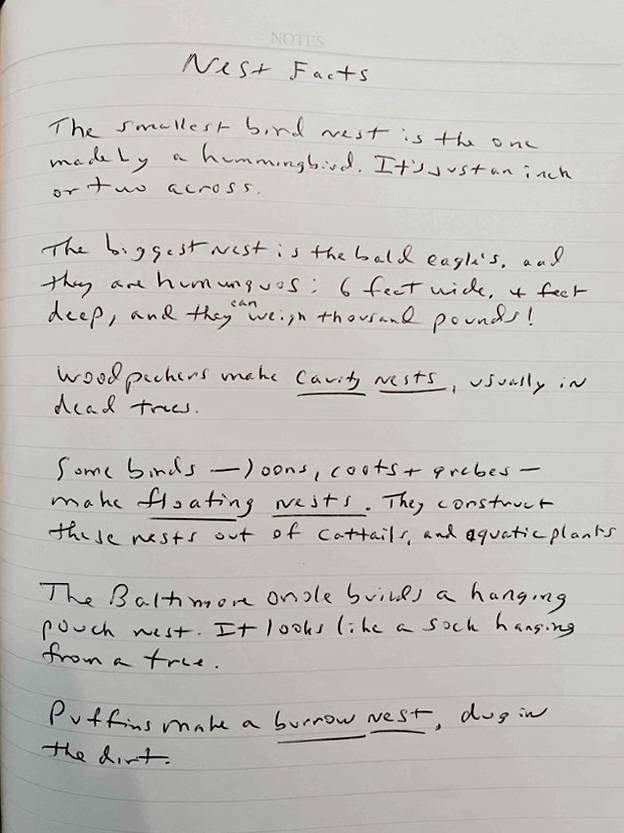 NOTES
Nest Facts
The smallest bird nest is the one
made by a hummingbird. It's just an inch
or two across.
The biggest nest is the bald eagle's, and
they are humunguos: 6 feet wide, 4 feet
deep, and they can weign thousand pounds!
Woodpeckers make cavity nests, usually in
dead trees.
Some birds — loons, coots + grebes —
make floating nests. They construct
these nests out of cattails, and aquatic plants
The Baltimore oriole builds a hanging
pouch nest. It looks like a sock hanging
from a tree.
Puffins make a burrow nest, dug in
the dirt.